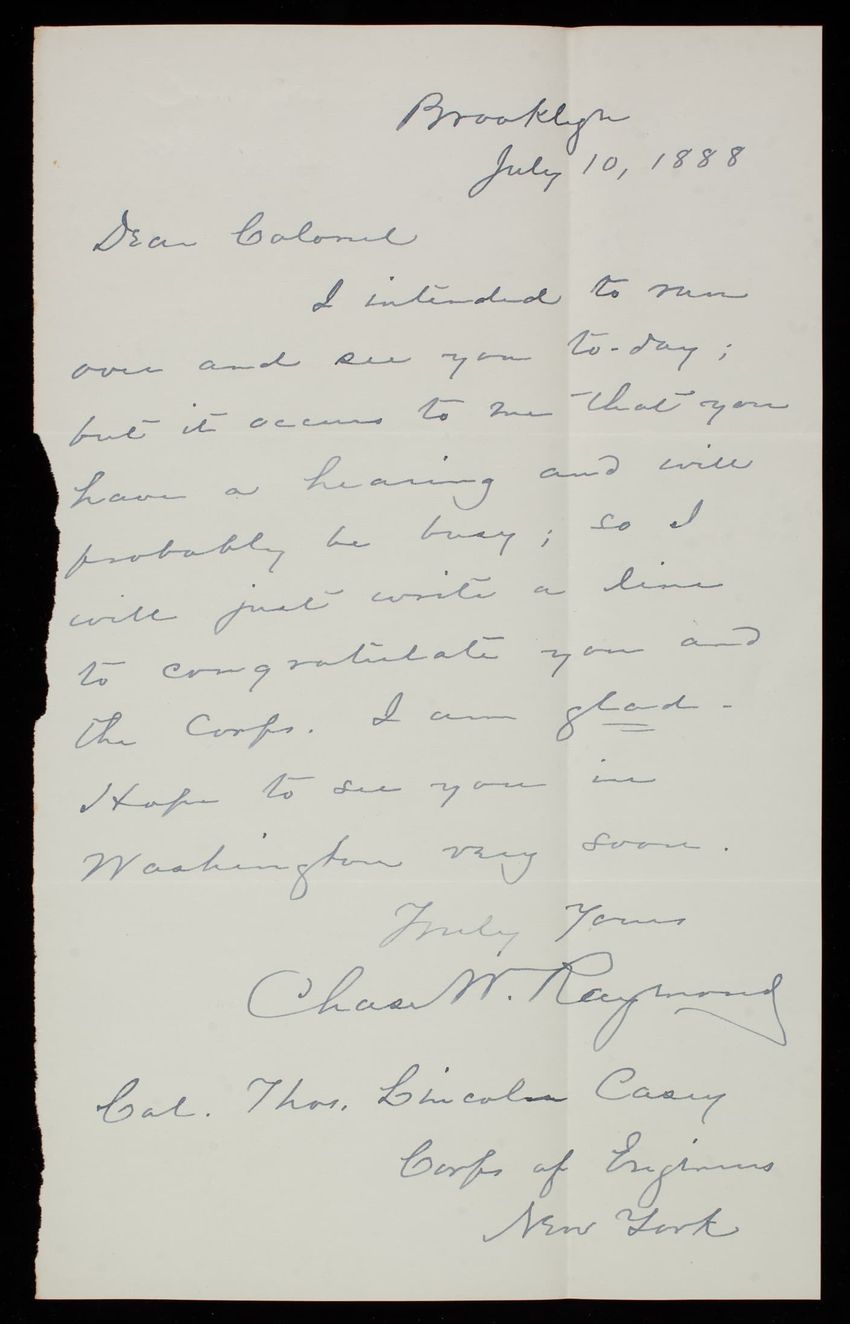 Brooklyn
July 10, 1888
Dear Colonel
I intended to run
over and see you to-day;
but it occurs to me that you
have a hearing and will
probably be busy; so I
will just write a line
to congratulate you and
the Corps. I am glad -
Hope to see you in
Washington very soon.
Truly Yours
Chas W. Raymond
Col. Thos. Lincoln Casey
Corps of Engineers
New York